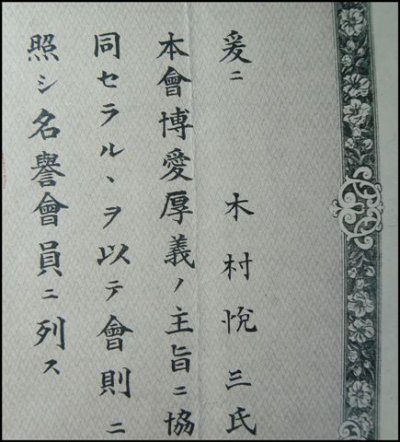 爰ニ
木村悅三氏
本會博愛厚義ノ主旨ニ協
同セラルヽヲ以テ會則ニ
照シ名譽會員ニ列ス